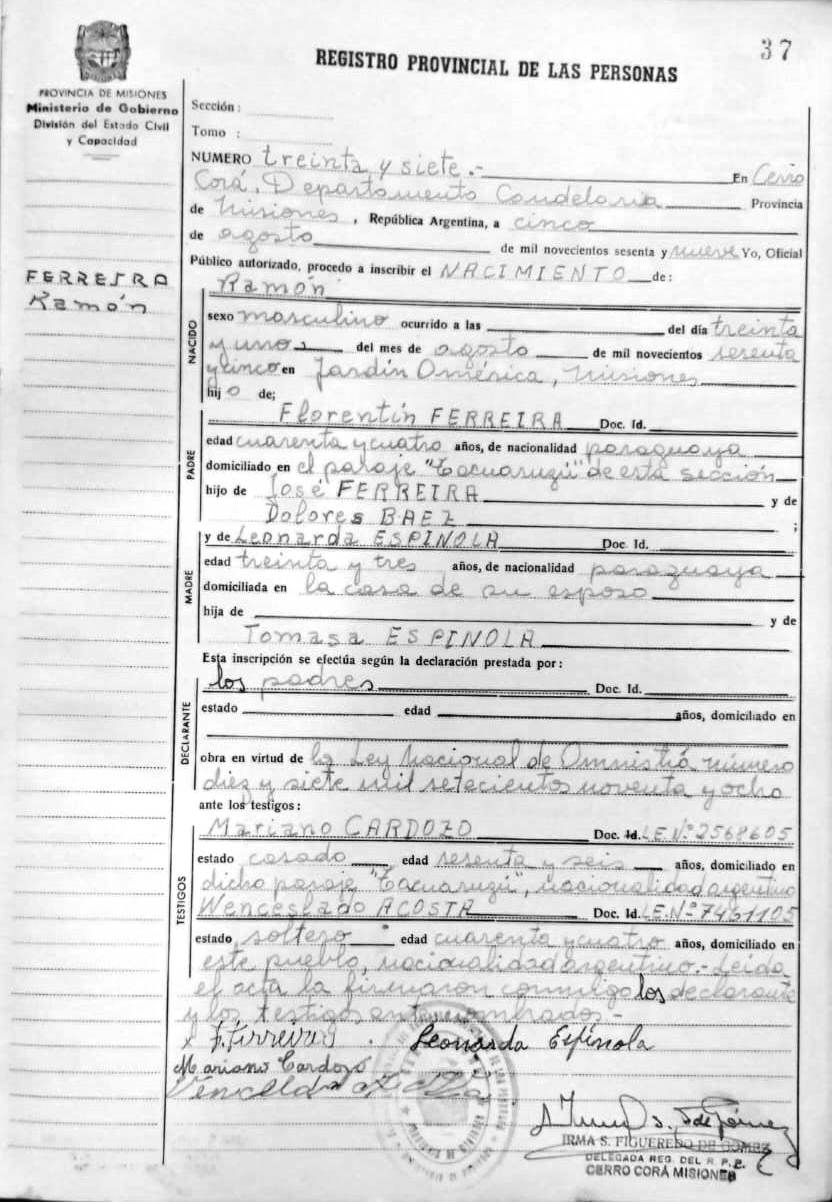 37
REGISTRO PROVINCIAL DE LAS PERSONAS
PROVINCIA DE MISIONES
Ministerio de Gobierno
División del Estado Civil
y Capacidad
FERREIRA
Ramón
Sección :
Tomo :
NUMERO treinta y siete.- En Cerro
Corá, Departamento Candelaria Provincia
de Misiones, República Argentina, a cinco
de agosto de mil novecientos sesenta y nueve Yo, Oficial
Público autorizado, procedo a inscribir el NACIMIENTO de:
NACIDO
Ramón
sexo masculino ocurrido a las del día treinta
y uno del mes de agosto de mil novecientos sesenta
y cinco en Jardín América, Misiones
hijo de;
PADRE
Florentín FERREIRA Doc. Id.
edad cuarenta y cuatro años, de nacionalidad paraguaya
domiciliado en el paraje "Tacuaruzú" de esta sección
hijo de José FERREIRA y de
Dolores BAEZ ;
MADRE
y de Leonarda ESPINOLA Doc. Id.
edad treinta y tres años, de nacionalidad paraguaya
domiciliada en la casa de su esposo
hija de y de
Tomasa ESPINOLA
DECLARANTE
Esta inscripción se efectúa según la declaración prestada por:
los padres Doc. Id.
estado edad años, domiciliado en
obra en virtud de la Ley Nacional de Amnistía número
diez y siete mil setecientos noventa y ocho
ante los testigos:
TESTIGOS
Mariano CARDOZO Doc. Id. L.E.Nº 2568605
estado casado edad sesenta y seis años, domiciliado en
dicho paraje "Tacuaruzú", nacionalidad argentino
Wenceslado ACOSTA Doc. Id. L.E.Nº 7461105
estado soltero edad cuarenta y cuatro años, domiciliado en
este pueblo, nacionalidad argentino.- Leída
el acta la firmaron conmigo los declarante
y los testigos antenombrados.-
x F. Ferreira Leonarda Espínola
Mariano Cardozo
IRMA S. FIGUEREDO DE GOMEZ
DELEGADA REG. DEL R. P. P.
CERRO CORÁ MISIONES